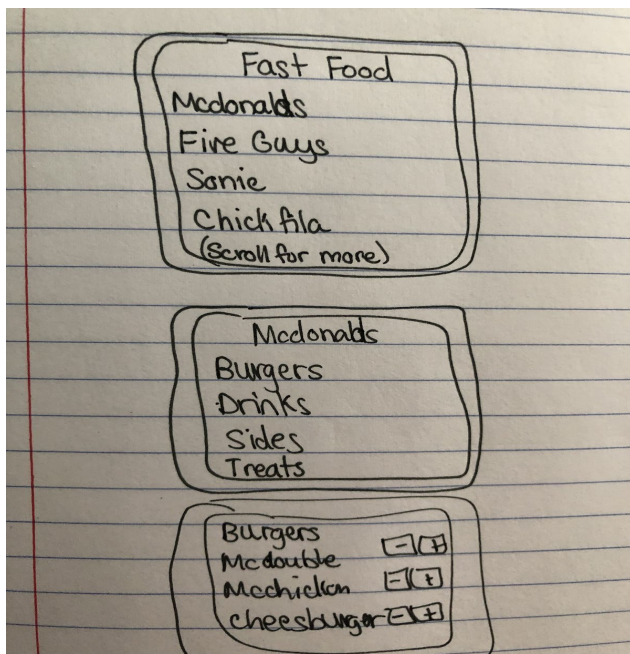 Fast Food
Mcdonalds
Five Guys
Sonic
Chickfila
(Scroll for more)
Mcdonalds
Burgers
Drinks
Sides
Treats
Burgers
Mcdouble - +
Mcchicken - +
cheesburger - +